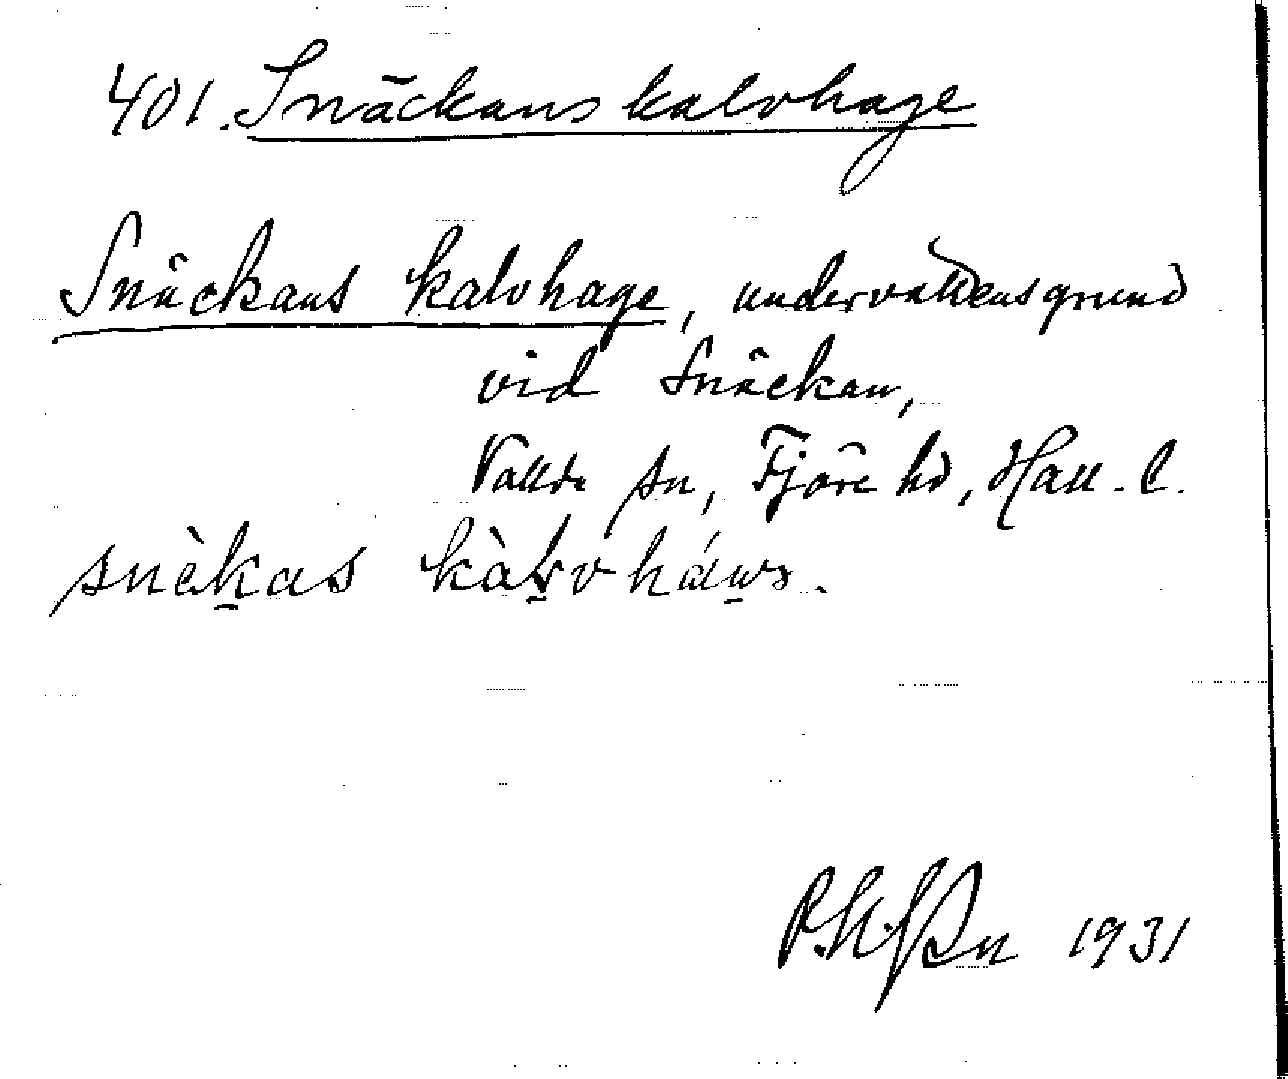 401. Snäckans kalvhage
Snäckans kalvhage, undervattensgrund
vid Snäckan,
Vallda sn, Fjäre hd, Hall. l.
snèkas kàḷvháws.
1931